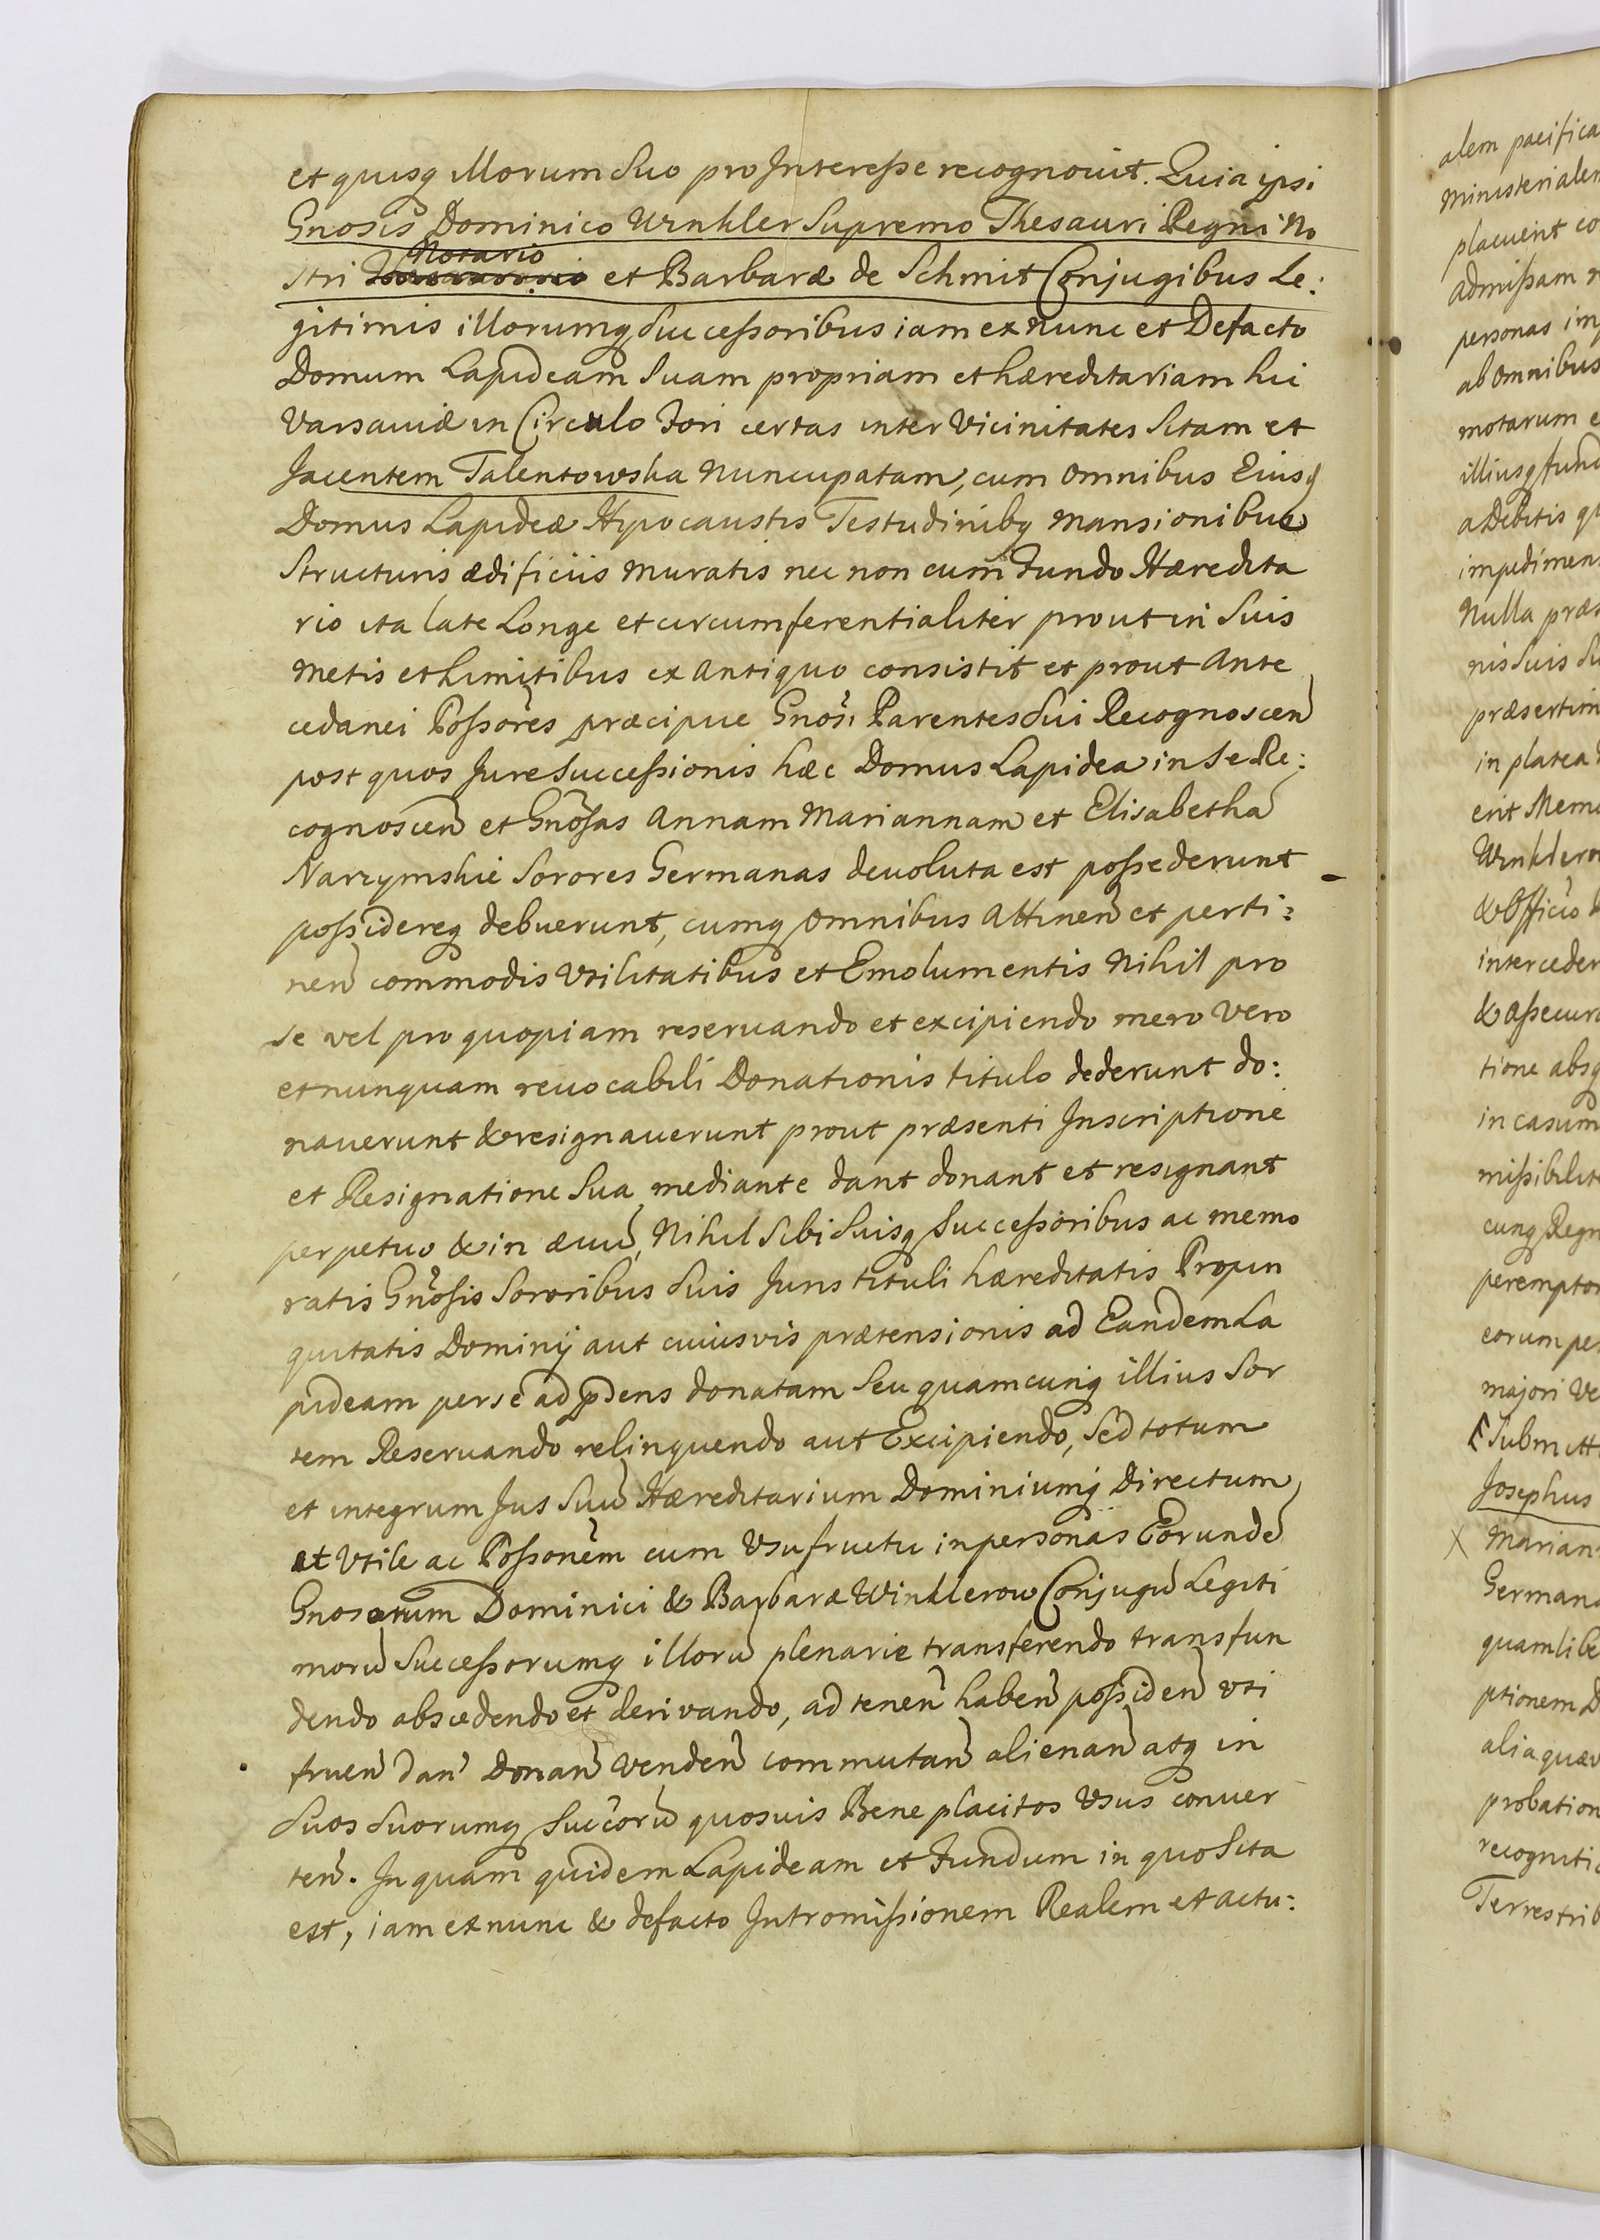 et quisq illorum Suo pro Interesse recognovit. Quia ipsi
Gnosis Dominico Winkler Supremo Thesauri Regni No
Notario
stri et Barbaræ de Schmit Conjugibus Le:
gitimis illorumq Successoribus iam ex nunc et Defacto
Domum Lapideam Suam propriam et hæreditariam hic
Varsaviæ in Circulo Fori certas inter Vicinitates Sitam et
Jacentem Talentowska Nuncupatam, cum omnibus Eiusd
Domus Lapideæ Hypocaustis Testudinibq Mansionibus
Structuris ædificiis Muratis nec non cum Fundo Hæredita
rio ita late Longe et circumferentialiter prout in Suis
Metis et Limitibus ex Antiquo consistit et prout Ante
cedanei Possõres præcipue Gnosi Parentes Sui Recognoscen̄
post quos Jure Successionis hæc Domus Lapidea in Se Re:
cognoscen̄ et Gnõsas Annam Mariannam et Elisabetha
Narzymskie Sorores Germanas devoluta est possederunt
possidereq debuerunt, cumq omnibus Attinen̄ et perti:
nen̄ commodis Utilitatibus et Emolumentis Nihil pro
se vel pro quopiam reservando et excipiendo mero Vero
et nunquam revocabili Donationis titulo dederunt do:
naverunt & resignaverunt prout præsenti Inscriptione
et Resignatione Sua mediante dant donant et resignant
perpetuo & in ævū, Nihil Sibi Suisq Successoribus ac memo
ratis Gnõsis Sororibus Suis Juris tituli hæreditatis Propin
quitatis Dominij aut cuiusvis prætensionis ad Eandem La
pideam per se ad p̃dens donatam Seu quamcunq illius Sor
tem Reservando relinquendo aut Excipiendo, Sed totum
et integrum Jus Suū Hæreditarium Dominiumq Directum
et Utile ac Possonẽm cum Usufructu in personas Eorundē
Gnosorum Dominici & Barbaræ Winklerow Conjugū Legiti
morū Successorumq illorū plenarie transferendo transfun
dendo abscedendo et derivando, ad tenen̄ haben̄ possiden̄ uti
fruen̄ dan̄ Donan̄ Venden̄ commutan̄ alienan̄ atq in
Suos Suorumq Succorū quosvis Bene placitos Usus conver
ten̄. In quam quidem Lapideam et Fundum in quo Sita
est, iam ex nunc & defacto Intromissionem Realem et actu:
alem pacifica
Ministerialem
placuerit
Admissam
personas
ab omnibus
motarum
illiusq
a Debitis
impedimen
Nulla præ
nis Suis
præsertim
in platea
erit
& Officio
interceder
tione absq
in casum
cunq Regn
perempto
eorum
majori Ve
Submitt
Josephus
X Marian
German
quamlibe
ptionem D
alia quæv
probation
recogniti
Terrestrib